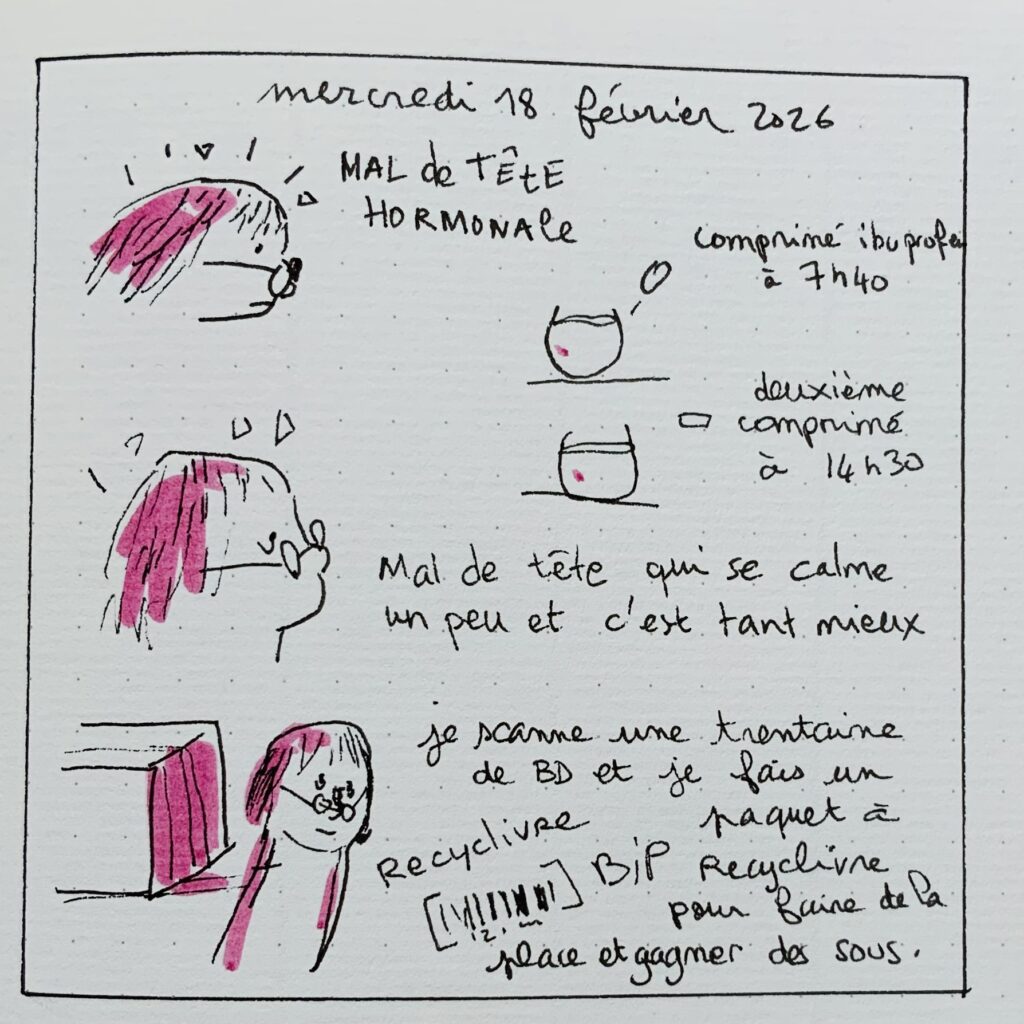 mercredi 18 février 2026
MAL de TÊTE
HORMONALE
comprimé ibuprofen
à 7h40
deuxième
comprimé
à 14h30
Mal de tête qui se calme
un peu et c'est tant mieux
je scanne une trentaine
de BD et je fais un
paquet à
Recyclivre
pour faire de la
place et gagner des sous.
Recyclivre
BiP